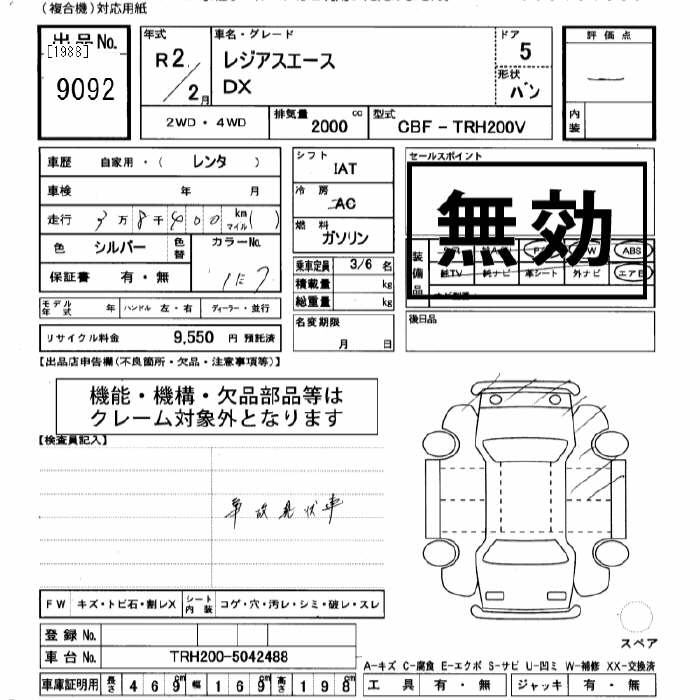 (複合機)対応用紙
出品No.
[1988]
9092
年式
R2/2月
車名・グレード
レジアスエース
DX
ドア
5
形状
バン
評価点
内装
2WD・4WD
排気量
2000 cc
型式
CBF - TRH200V
車歴 自家用・( レンタ )
車検 年 月
走行 万 8千 400 km マイル ( )
色 シルバー 色替 カラーNo.
保証書 有・無 1E7
モデル年式 年 ハンドル 左・右 ディーラー・並行
リサイクル料金 9,550 円 預託済
シフト
IAT
冷房
AC
燃料
ガソリン
乗車定員 3/6 名
積載量 kg
総重量 kg
名変期限
月 日
セールスポイント
無効
装備品
ABS
純TV 純ナビ 革シート 外ナビ エアB
後日品
【出品店申告欄(不良箇所・欠品・注意事項等)】
機能・機構・欠品部品等は
クレーム対象外となります
【検査員記入】
事故現状車
FW キズ・トビ石・割レX シート内装 コゲ・穴・汚レ・シミ・破レ・スレ
登録No.
車台No. TRH200-5042488
車庫証明用 長さ 469cm 幅 169cm 高さ 198cm
スペア
A-キズ C-腐食 E-エクボ S-サビ U-凹ミ W-補修 XX-交換済
工具 有・無 ジャッキ 有・無